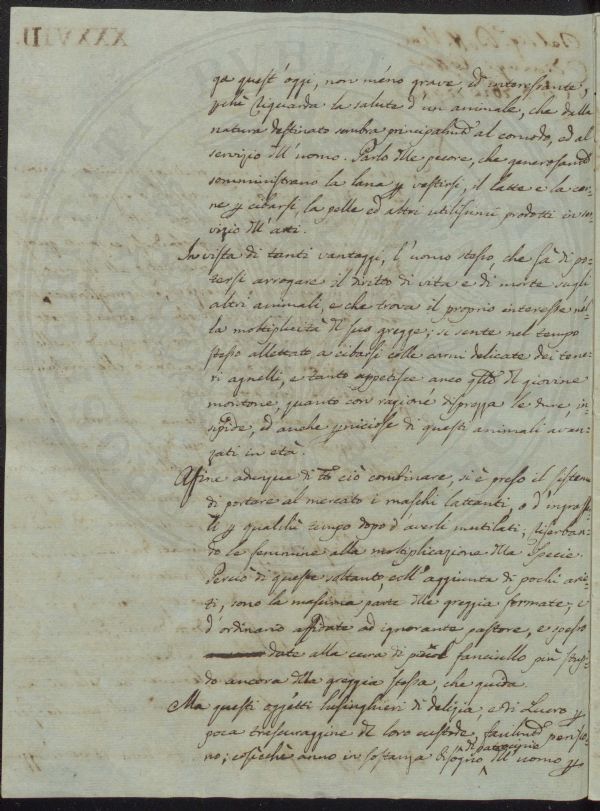 ga quest'oggi, non méno grave, ed interessante,
pchè riguarda la salute d'un animale, che dalla
natura destinato sembra principalmte al comodo, ed al
servizio dll'uomo. Parlo dlle pecore, che generosamte
somministrano la lana p vestirsi, il latte e la car-
ne p cibarsi, la pelle ed altri utilissimi prodotti in ser-
vizio dll'arti.
In vista di tanti vantaggi, l'uomo stesso, che sà di po-
tersi arrogare il diritto di vita e di morte sugli
altri animali, e che trova il proprio interesse nel-
la moltiplicità dl suo gregge; si sente nel tempo
stesso allettato a cibarsi colle carni delicate dei tene-
ri agnelli, e tanto appetisce anco qlle dl giovine
montone, quanto con ragione disprezza le dure, in-
sipide, ed anche pniciose di questi animali avan-
zati in età.
Afine adunque di tto ciò combinare, si è preso il sistema
di portare al mercato i maschi lattanti o d'ingrassar-
li p qualchè tempo dopo d'averli mutilati; riserban-
do le femmine alla moltiplicazione dlla Specie.
Perciò di queste soltanto, coll'aggiunta di pochi arie-
ti, sono la massima parte dlle greggia formate; e
d'ordinario affidate ad ignorante pastore, e spesso
date alla cura di picol fanciullo più stupi-
do ancora dlla greggia stessa, che guida.
Ma questi oggetti lusinghieri di delizia, e di Lucro p
poca trascuraggine dl loro custode, facilmte perisco-
no; cosicchè anno in sostanza bisogno dl patrocinio dll'uomo p
XXXVIII.